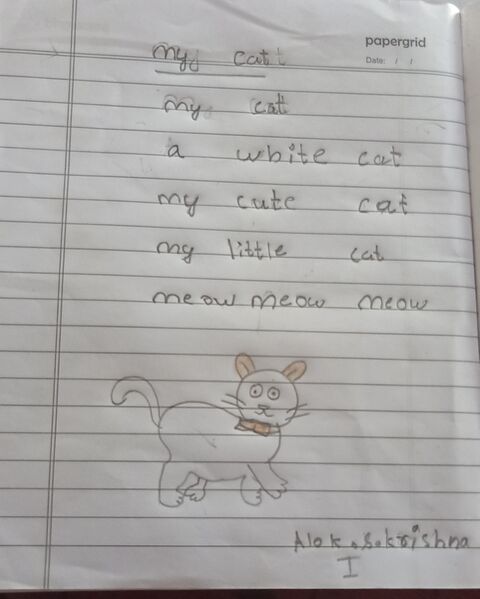 papergrid
Date: / /
my cat
my cat
a white cat
my cute cat
my little cat
meow meow meow
Alok.S.krishna
I